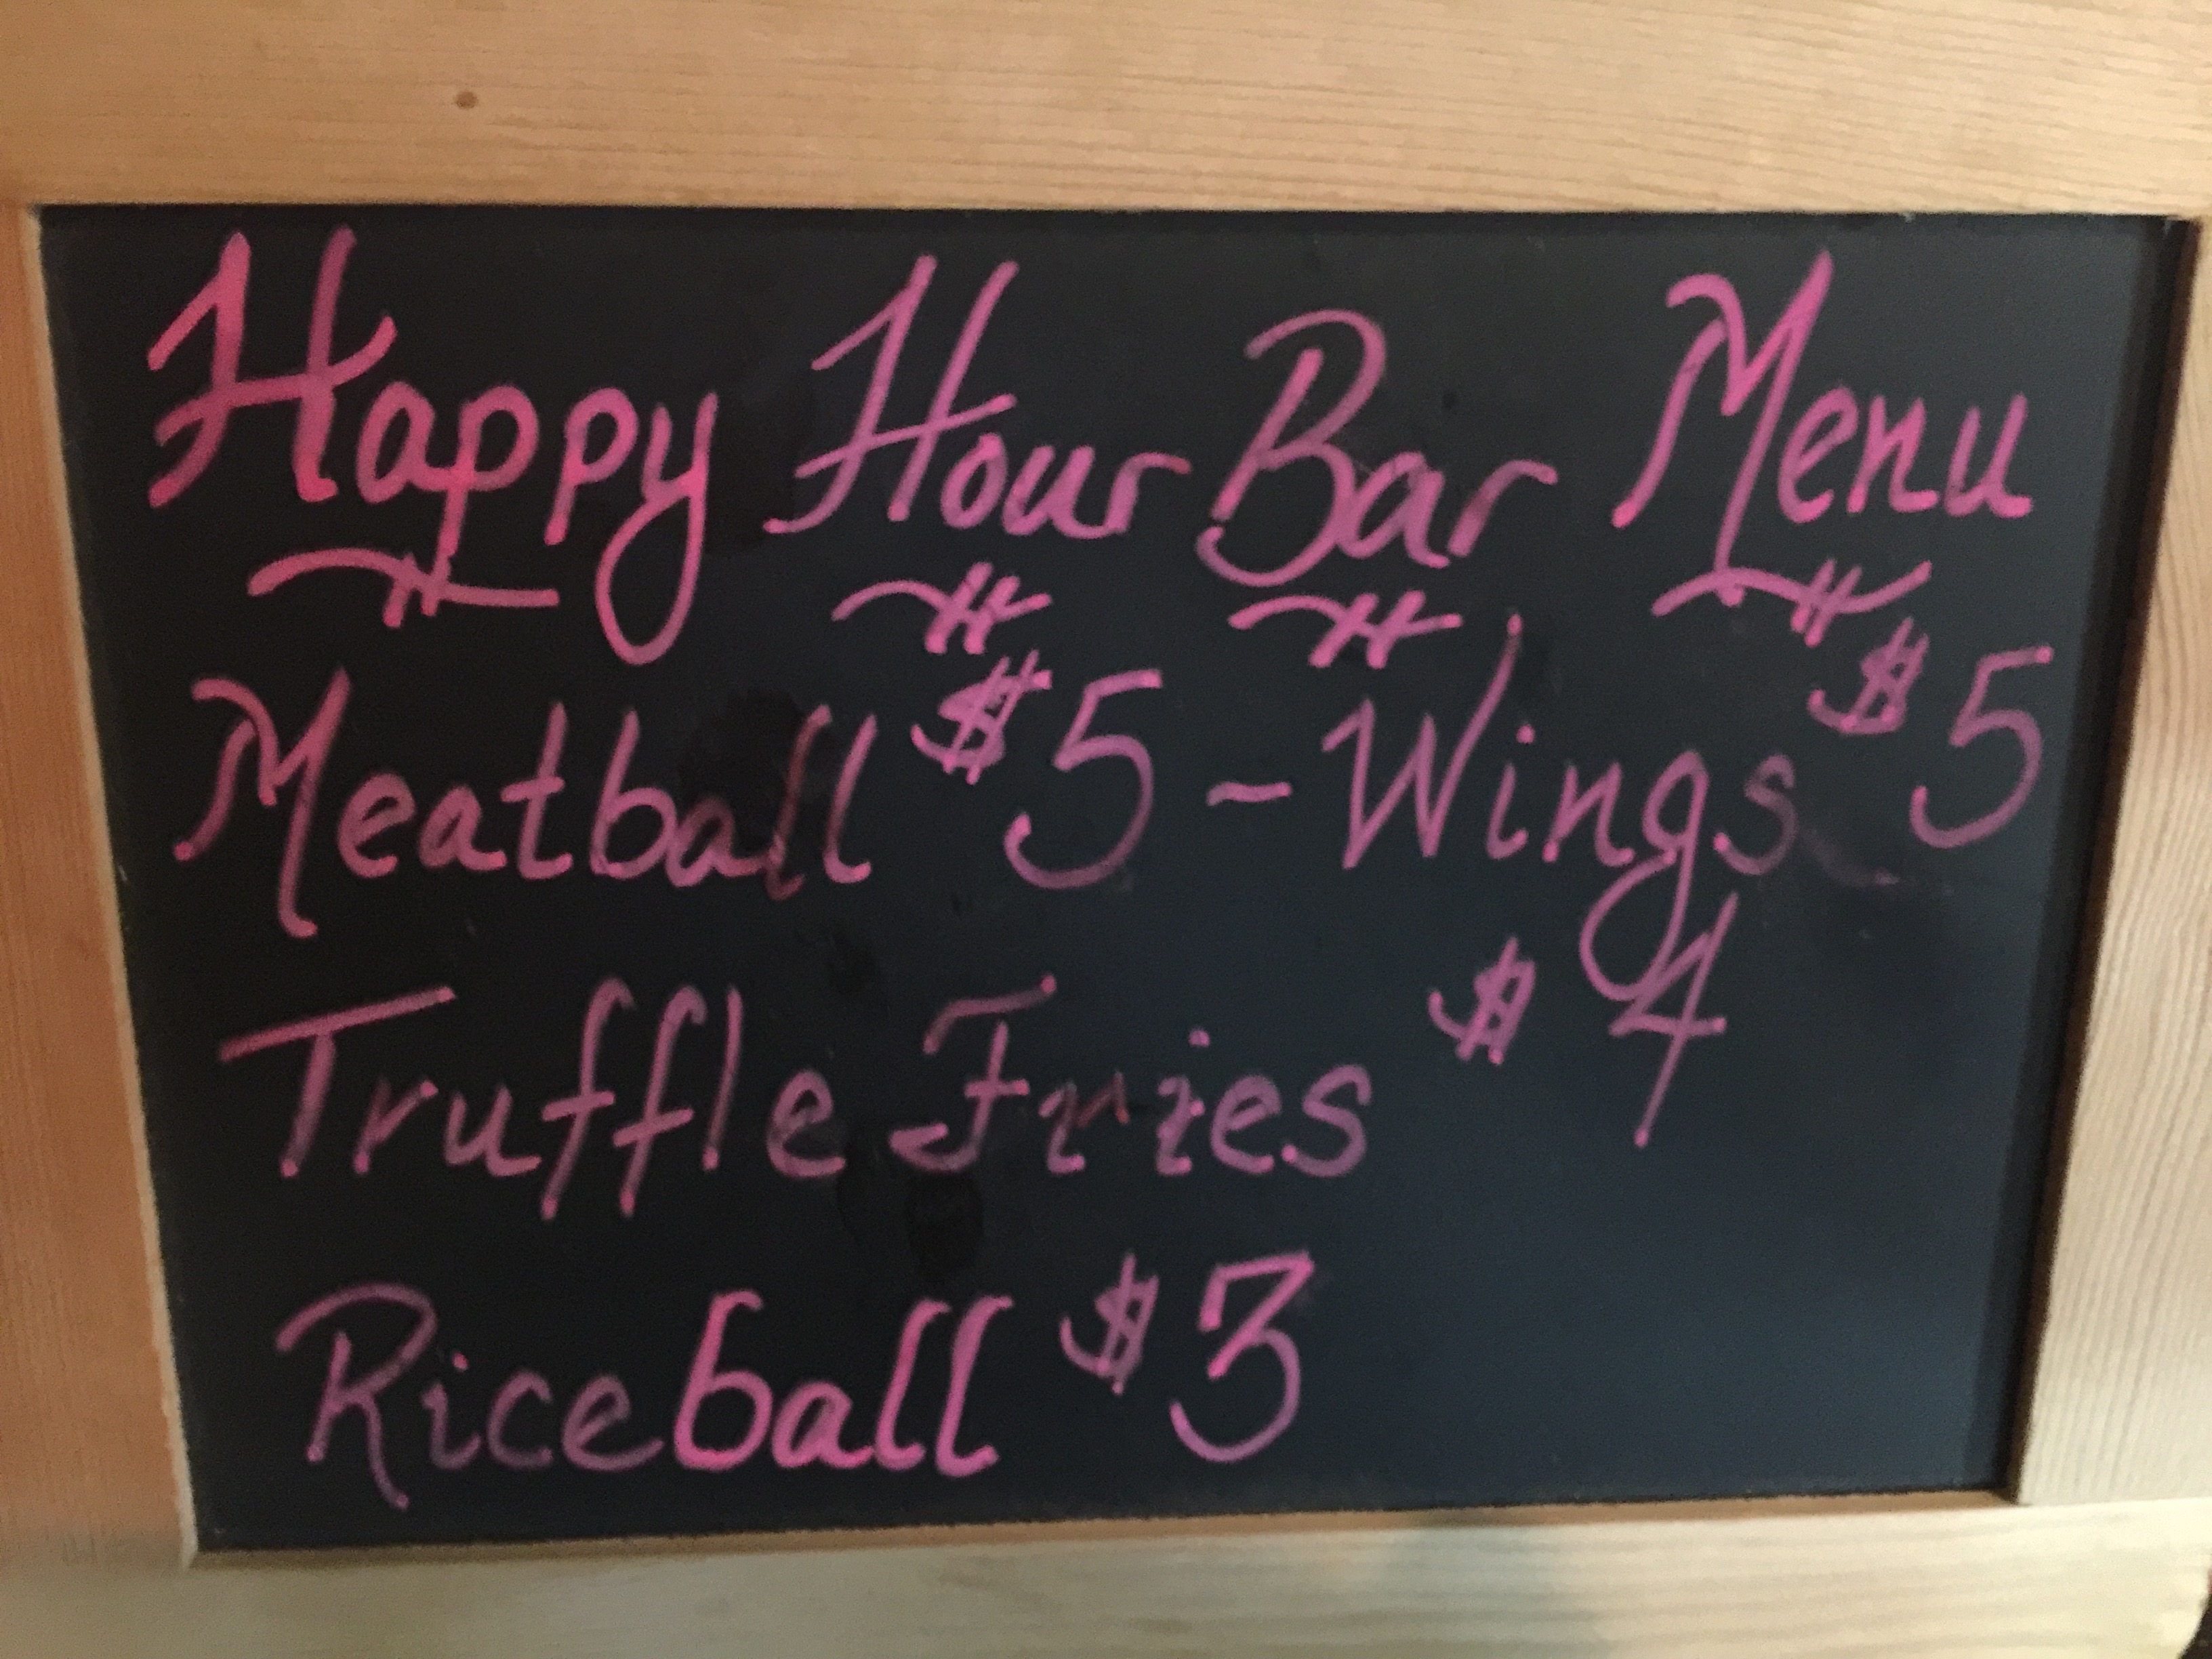 Happy Hour Bar Menu
Meatball $5 - Wings $5
Truffle Fries $4
Riceball $3